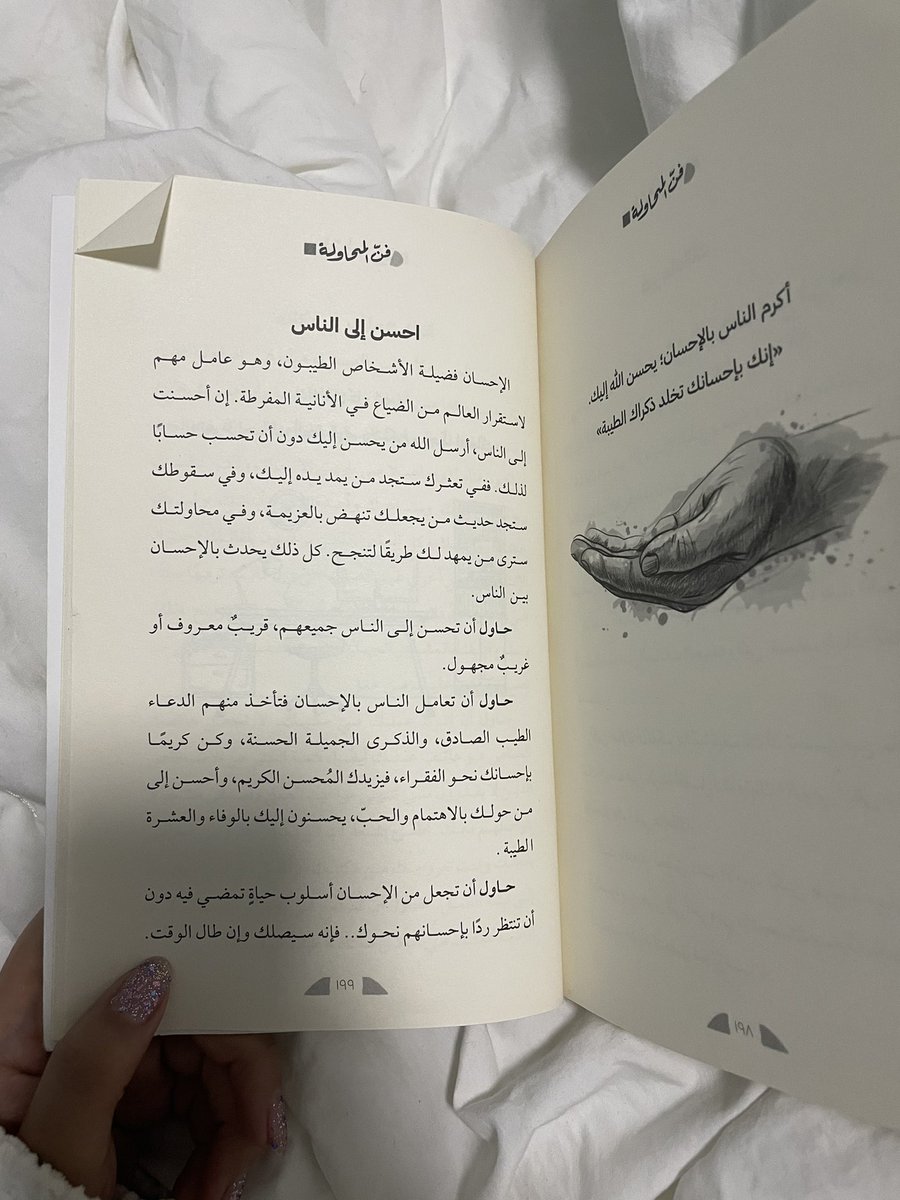 فنّ المحاولة
أكرم الناس بالإحسان؛ يحسن الله إليك.
«إنك بإحسانك تخلد ذكراك الطيبة»
١٩٨
فنّ المحاولة
احسن إلى الناس
الإحسان فضيلة الأشخاص الطيبون، وهو عامل مهم
لاستقرار العالم من الضياع في الأنانية المفرطة. إن أحسنت
إلى الناس، أرسل الله من يحسن إليك دون أن تحسب حسابًا
لذلك. ففي تعثرك ستجد من يمد يده إليك، وفي سقوطك
ستجد حديث من يجعلك تنهض بالعزيمة، وفي محاولتك
سترى من يمهد لك طريقًا لتنجح. كل ذلك يحدث بالإحسان
بين الناس.
حاول أن تحسن إلى الناس جميعهم، قريبٌ معروف أو
غريبٌ مجهول.
حاول أن تعامل الناس بالإحسان فتأخذ منهم الدعاء
الطيب الصادق، والذكرى الجميلة الحسنة، وكن كريمًا
بإحسانك نحو الفقراء، فيزيدك المُحسن الكريم، وأحسن إلى
من حولك بالاهتمام والحبّ، يحسنون إليك بالوفاء والعشرة
الطيبة .
حاول أن تجعل من الإحسان أسلوب حياةٍ تمضي فيه دون
أن تنتظر ردًا بإحسانهم نحوك.. فإنه سيصلك وإن طال الوقت.
١٩٩